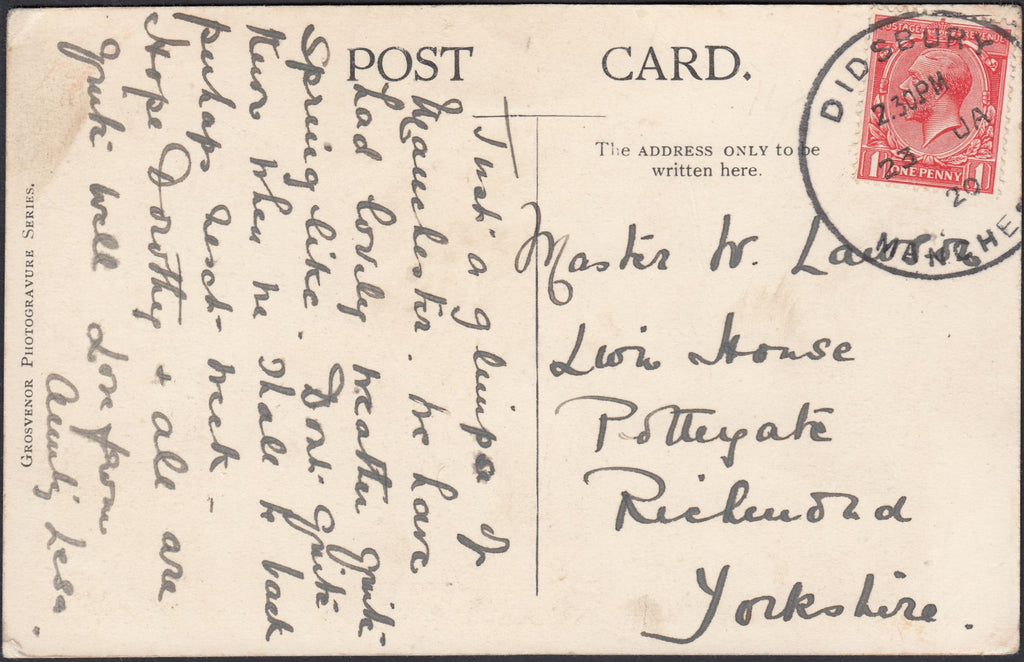 POST CARD.
The ADDRESS ONLY to be
written here.
GROSVENOR PHOTOGRAVURE SERIES.
DIDSBURY
2.30PM
23 JA
20
MANCHE
POSTAGE REVENUE
1 ONE PENNY 1
Just a glimpse of
Manchester. We have
had lovely weather quite
Spring like. Don't quite
know when we shall be back
perhaps next week –
Hope Dorothy & all are
quite well Love from
Aunty
Master W.
Lion House
Pottergate
Richmond
Yorkshire.